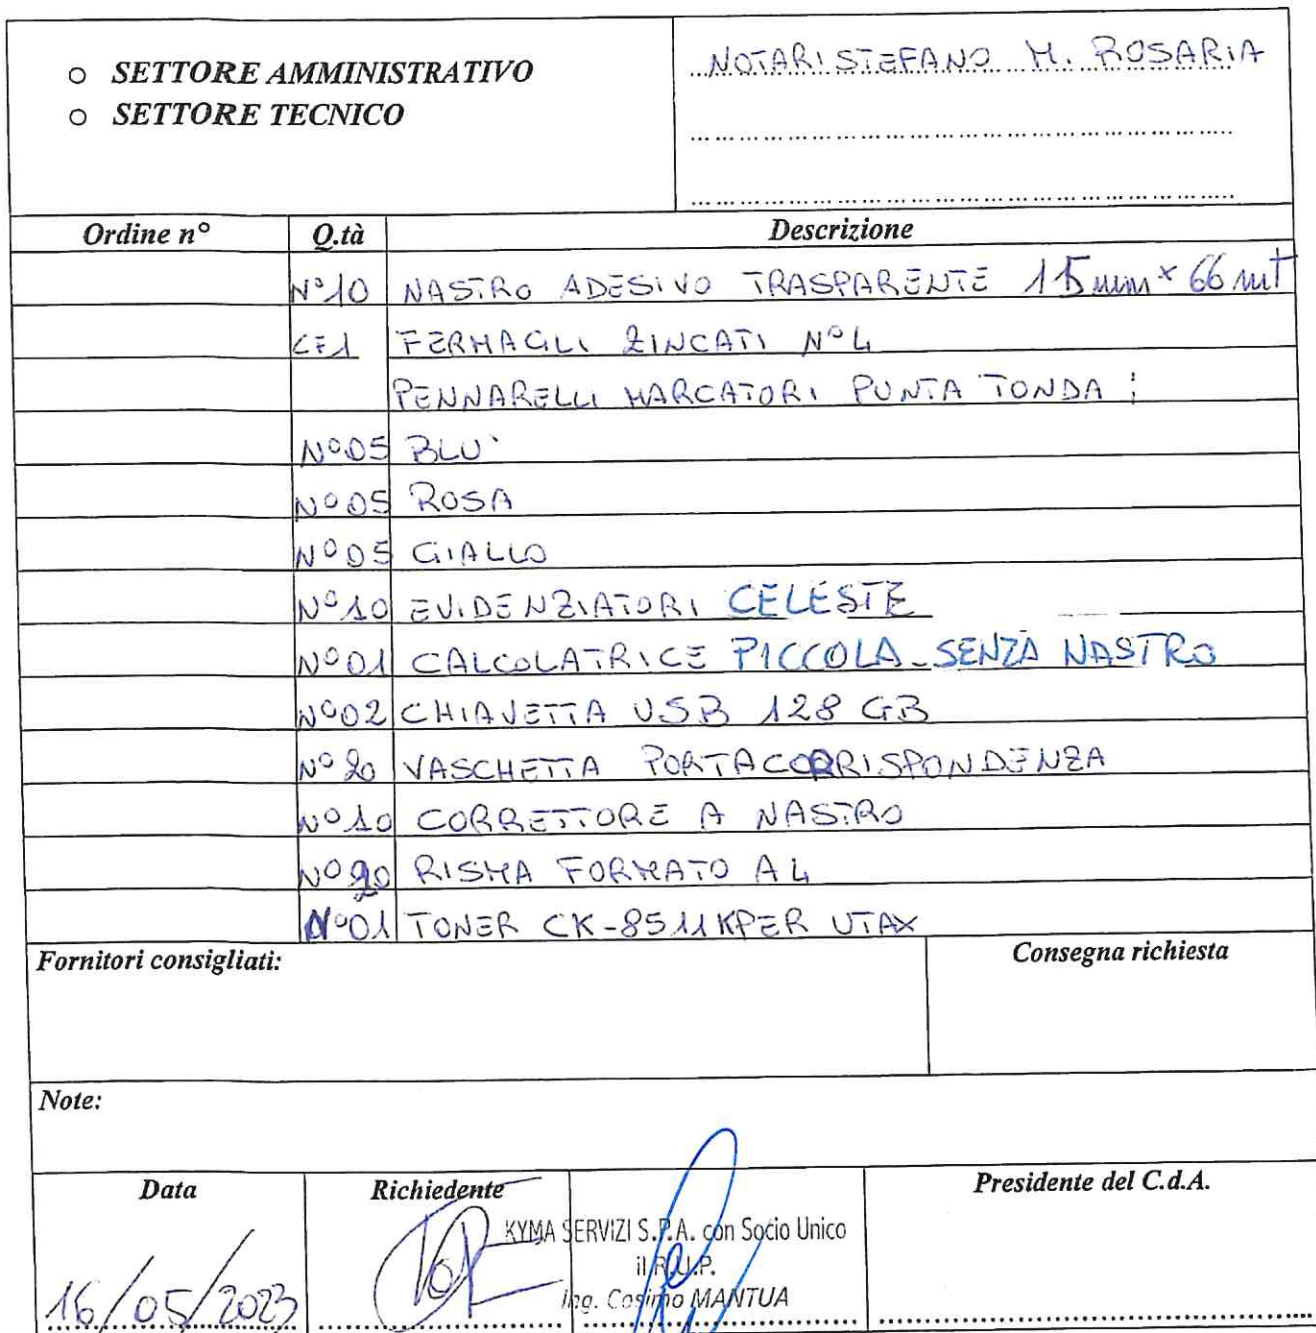 ○ SETTORE AMMINISTRATIVO
○ SETTORE TECNICO
NOTARISTEFANO M. ROSARIA
Ordine n° Q.tà Descrizione
N°10 NASTRO ADESIVO TRASPARENTE 15 mm x 66 mt
CF1 FERMAGLI ZINCATI N°4
PENNARELLI MARCATORI PUNTA TONDA :
N°05 BLU'
N°05 ROSA
N°05 GIALLO
N°10 EVIDENZIATORI CELESTE
N°01 CALCOLATRICE PICCOLA - SENZA NASTRO
N°02 CHIAVETTA USB 128 GB
N°20 VASCHETTA PORTACORRISPONDENZA
N°10 CORRETTORE A NASTRO
N° RISMA FORMATO A4
N°01 TONER CK-8511K PER UTAX
Fornitori consigliati: Consegna richiesta
Note:
Data Richiedente Presidente del C.d.A.
KYMA SERVIZI S.P.A. con Socio Unico
il R.U.P.
Ing. Cosimo MANTUA
16/05/2023